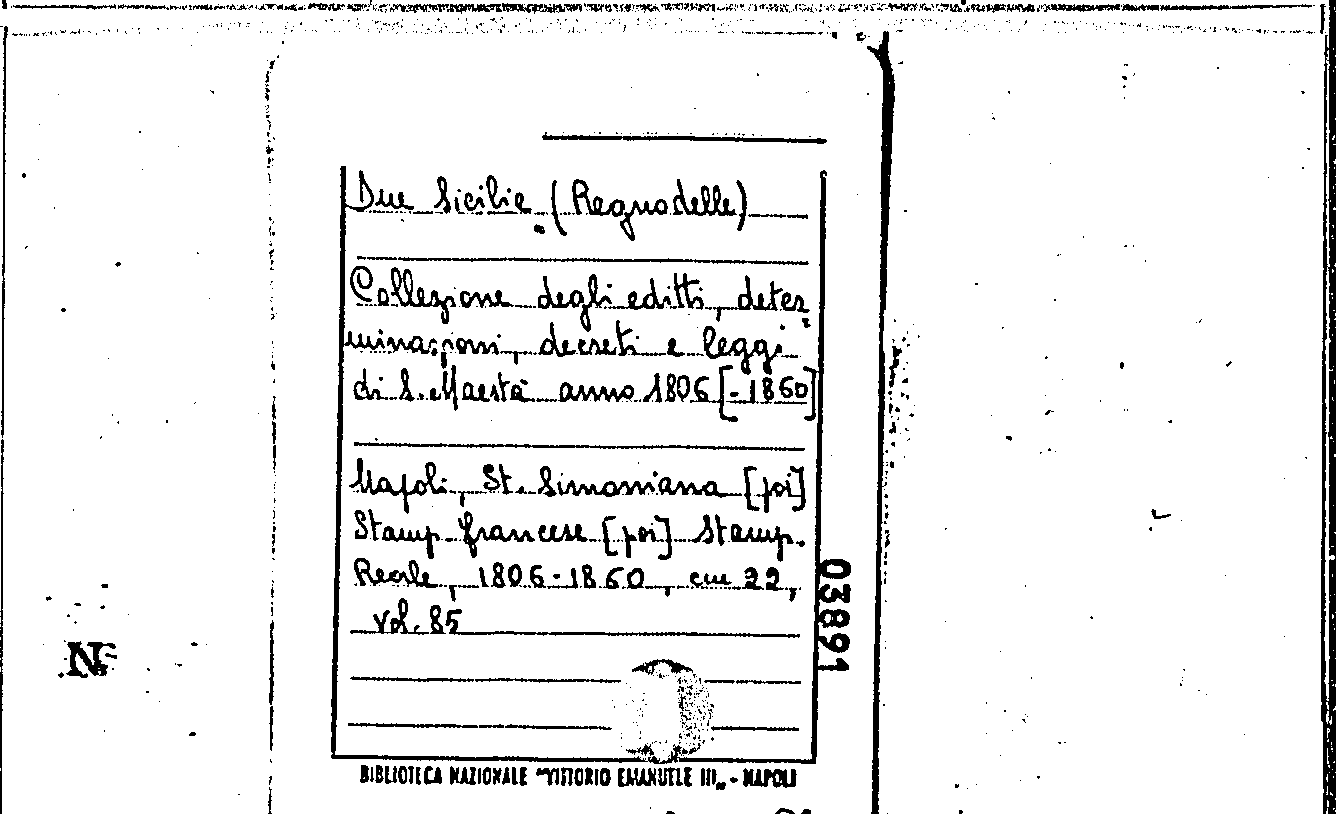 Due Sicilie (Regno delle)
Collezione degli editti, deter
minazioni, decreti e leggi
di S. Maestà anno 1806 [-1860]
Napoli, St. Simoniana [poi]
Stamp. francese [poi] Stamp.
Reale, 1806-1860, cm 22,
vol. 85
03891
N
BIBLIOTECA NAZIONALE "VITTORIO EMANUELE III„ - NAPOLI